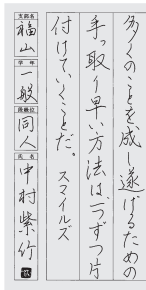 多くのことを成し遂げるための
手っ取り早い方法は一つずつ片
付けていくことだ。スマイルズ
支部名
福山
学年
一般
段級位
同人
氏名
中村紫竹